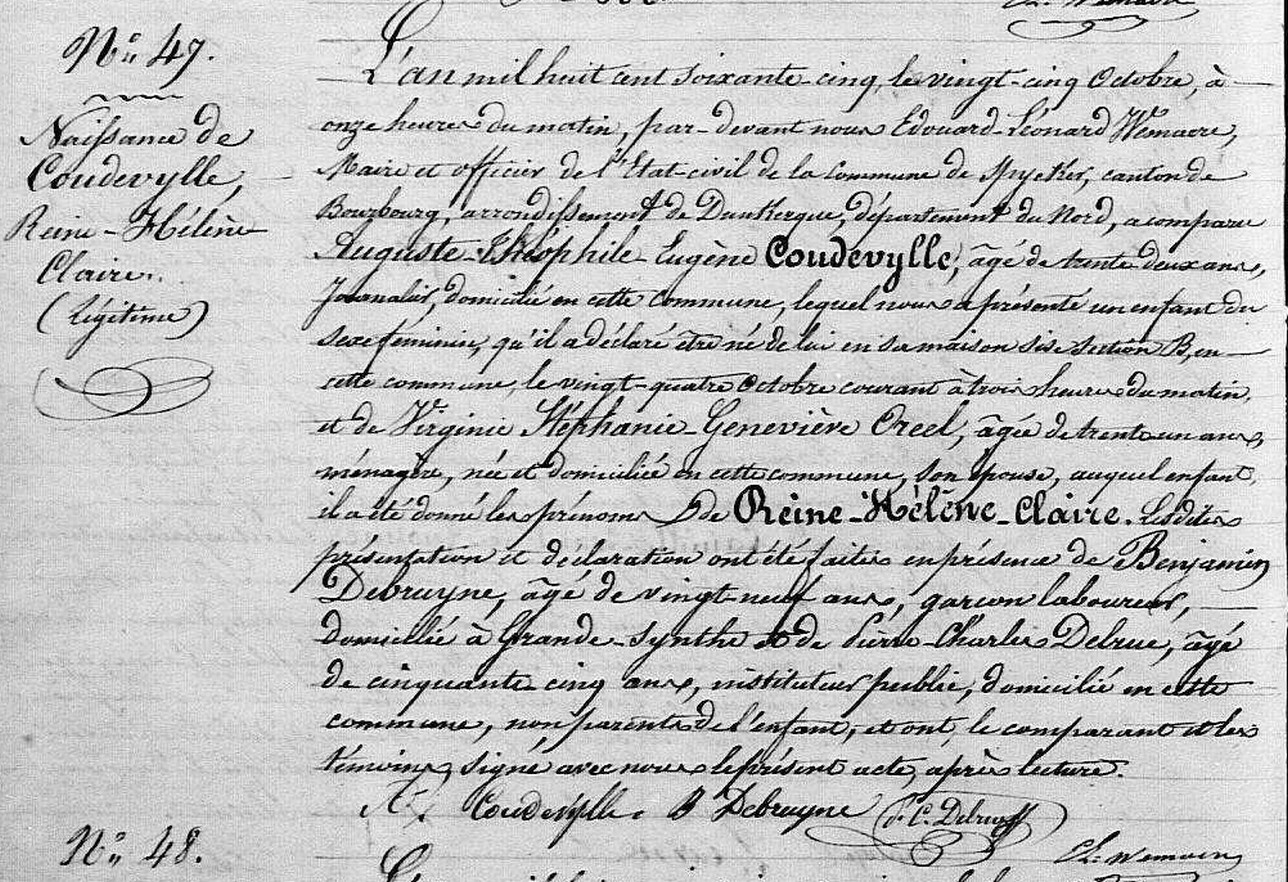 N.º 47.
Naissance de
Coudevylle,
Reine-Hélène
Claire.
(Légitime)
L'an mil huit cent soixante-cinq, le vingt-cinq Octobre, à
onze heures du matin, par-devant nous Edouard-Léonard Wemaere,
Maire et officier de l'Etat-civil de la commune de Spycker, canton de
Bourbourg, arrondissement de Dunkerque, département du Nord, a comparu
Auguste-Théophile-Eugène Coudevylle, âgé de trente deux ans,
Journalier, domicilié en cette commune, lequel nous a présenté un enfant du
sexe féminin, qu'il a déclaré être né de lui en sa maison sise section B, en
cette commune, le vingt-quatre Octobre courant à trois heures du matin,
et de Virginie Stéphanie-Geneviève Creel, âgée de trente un ans,
ménagère, née et domiciliée en cette commune, son épouse, auquel enfant,
il a été donné les prénoms de Reine-Hélène-Claire. Lesdites
présentation et déclaration ont été faites en présence de Benjamin
Debruyne, âgé de vingt-neuf ans, garçon laboureur,
domicilié à Grande-Synthe et de Pierre-Charles Delrue, âgé
de cinquante-cinq ans, instituteur public, domicilié en cette
commune, non parents de l'enfant, et ont, le comparant et les
témoins, signé avec nous le présent acte, après lecture.
Coudevylle. B Debruyne P. C. Delrue
Wemaere
N.º 48.